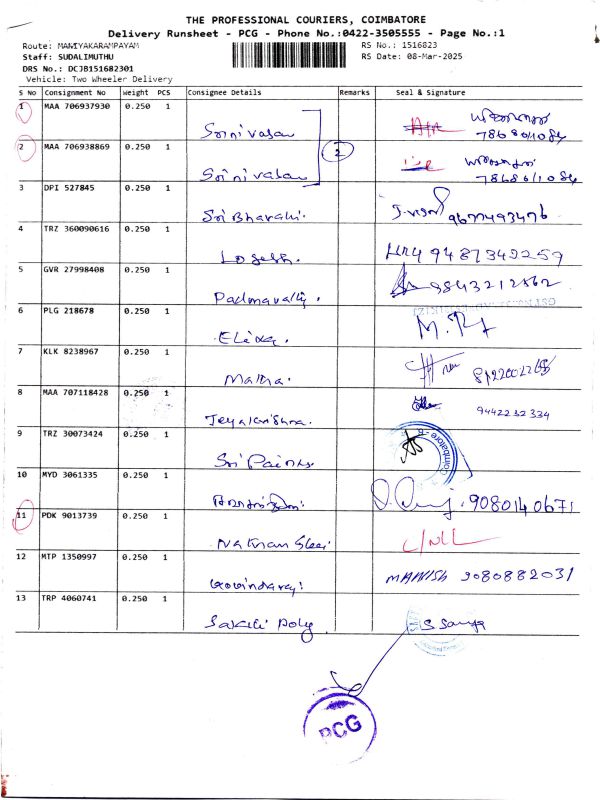 THE PROFESSIONAL COURIERS, COIMBATORE
Delivery Runsheet - PCG - Phone No.:0422-3505555 - Page No.:1
Route: MANIYAKARAMPAYAM RS No.: 1516823
Staff: SUDALIMUTHU RS Date: 08-Mar-2025
DRS No.: DCJB151682301
Vehicle: Two Wheeler Delivery
S No Consignment No Weight PCS Consignee Details Remarks Seal & Signature
1 MAA 706937930 0.250 1
Srinivasan
7868061084
2 MAA 706938869 0.250 1 2
Srinivasan
7868061084
3 DPI 527845 0.250 1
Sri Bharathi. 9677493476
4 TRZ 360090616 0.250 1
Logesh. 9487342259
5 GVR 27998408 0.250 1
Padmavathy. 9843212562
6 PLG 218678 0.250 1
7 KLK 8238967 0.250 1
8 MAA 707118428 0.250 1
Jeyakrishna. 9442232334
9 TRZ 30073424 0.250 1
Coimbatore
Sri Paints
10 MYD 3061335 0.250 1
9080140671
11 PDK 9013739 0.250 1
12 MTP 1350997 0.250 1
Govindaraj. MANISH 9080882031
13 TRP 4060741 0.250 1
Sakthi Poly
PCG